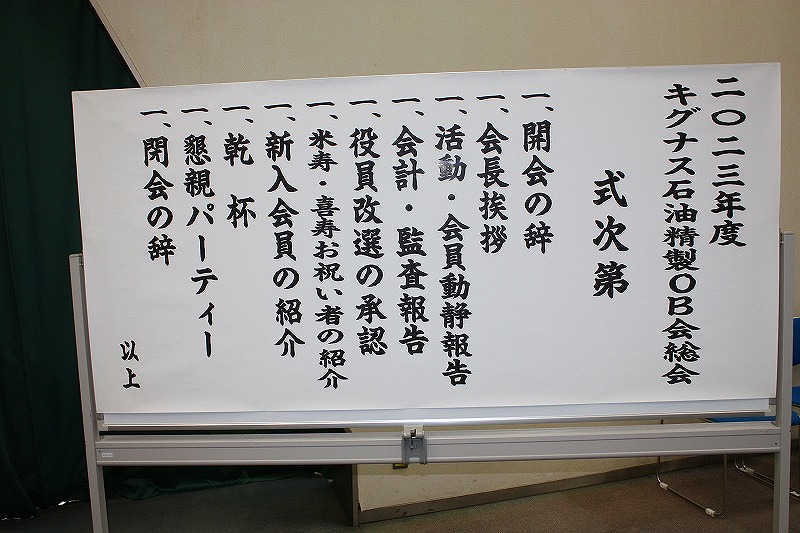 二〇二三年度
キグナス石油精製OB会総会
式次第
一、開会の辞
一、会長挨拶
一、活動・会員動静報告
一、会計・監査報告
一、役員改選の承認
一、米寿・喜寿お祝い者の紹介
一、新入会員の紹介
一、乾 杯
一、懇親パーティー
一、閉会の辞
以上